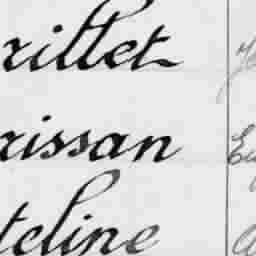 rillet
rissan
teline